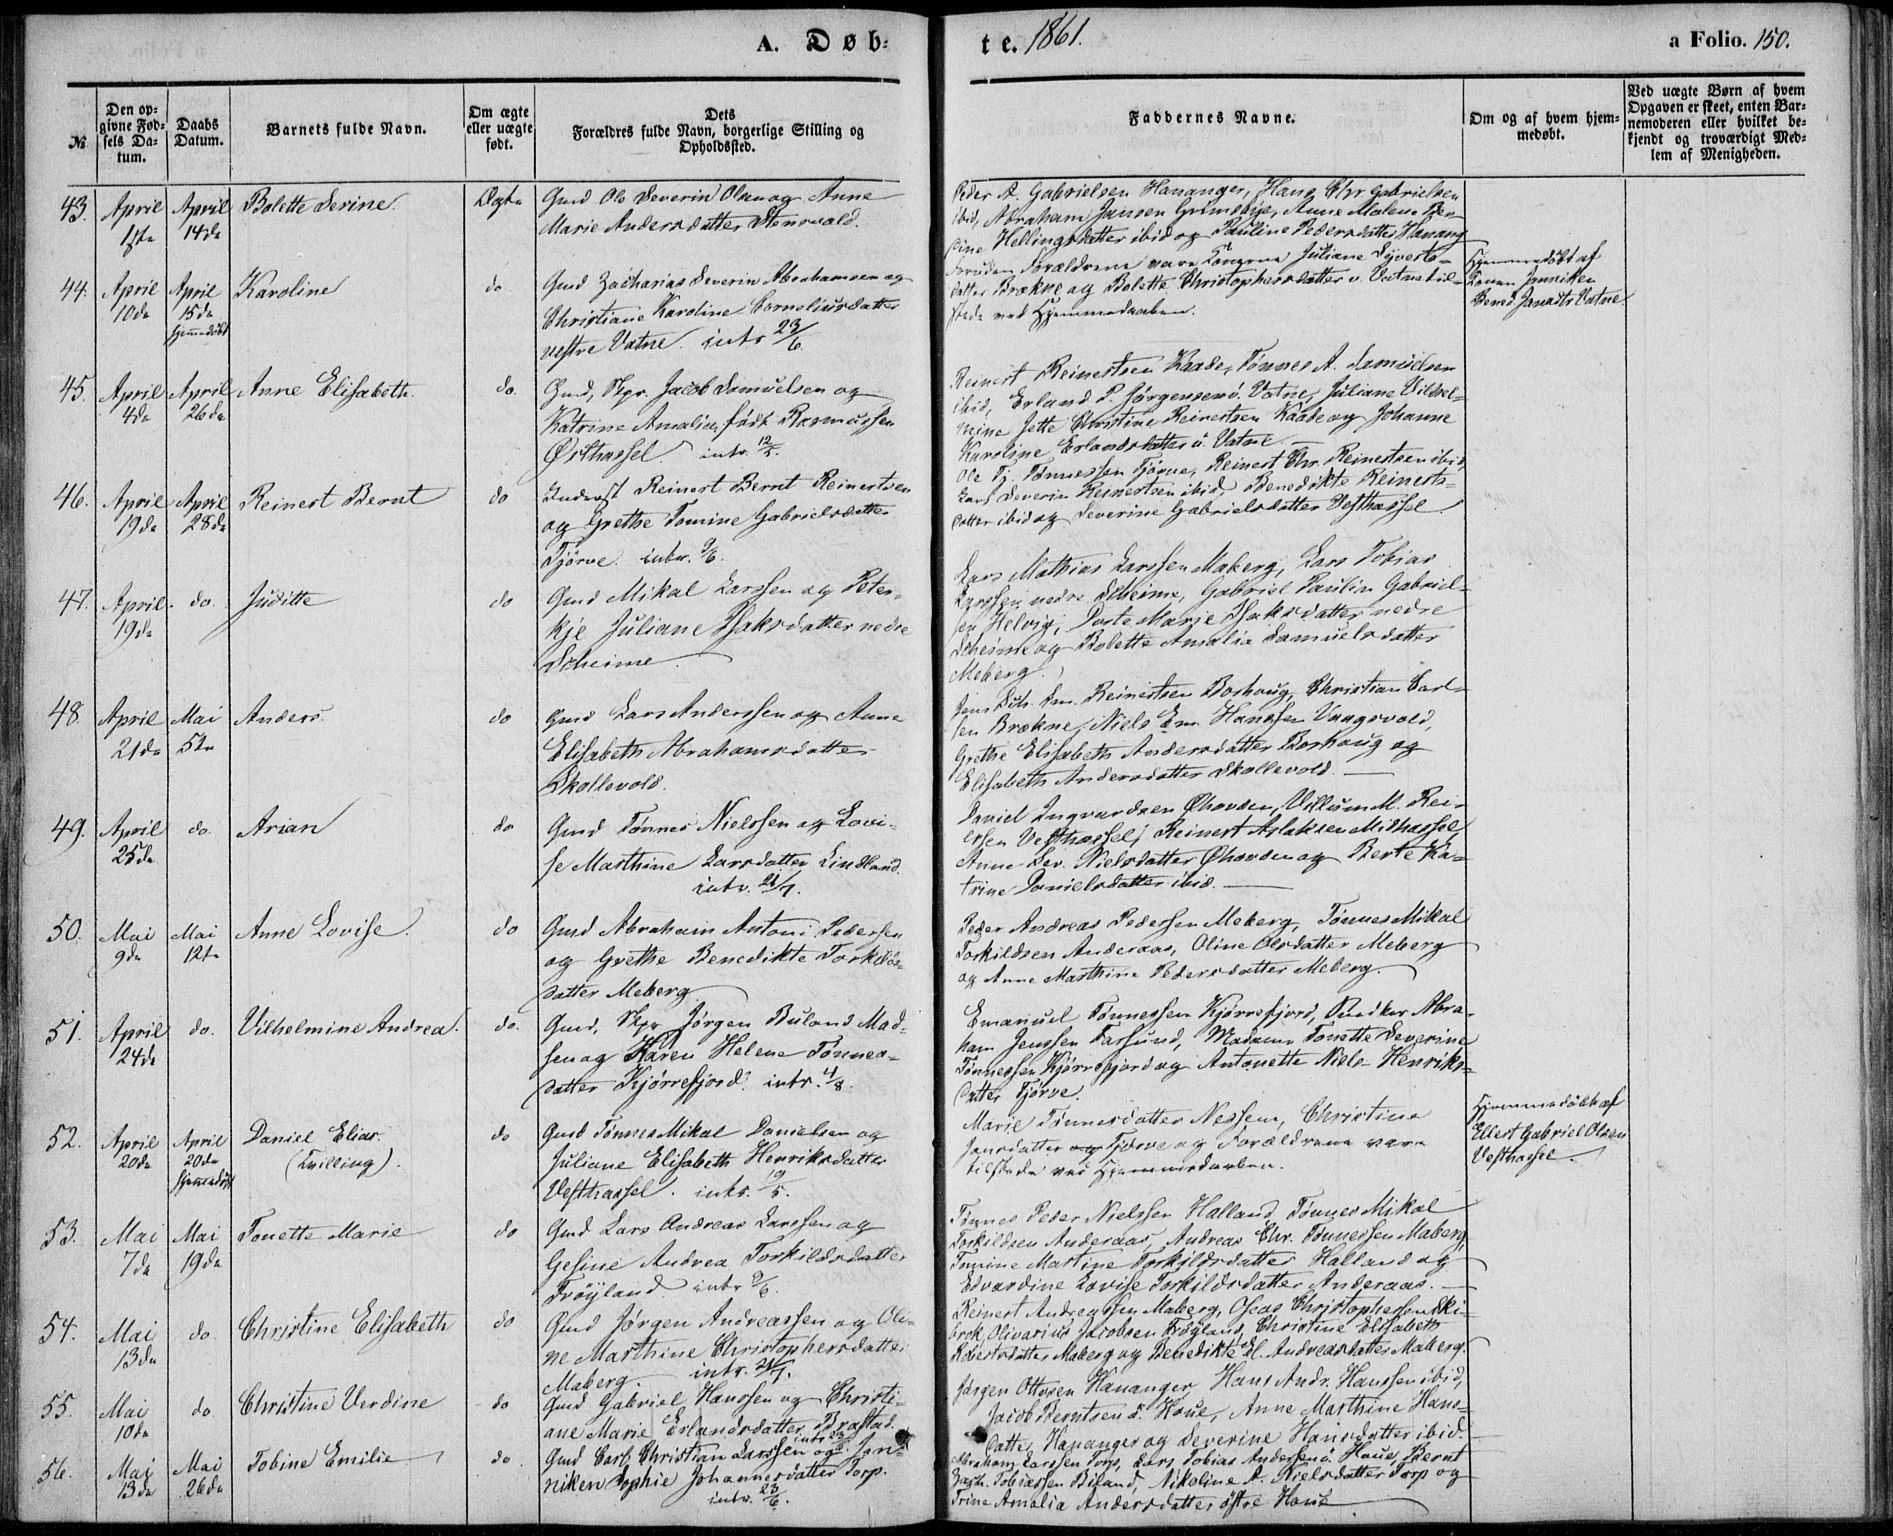 A. Døb=
te. 1861.
a Folio. 150.
№
Den op=
givne Fød=
sels Da=
tum.
Daabs
Datum.
Barnets fulde Navn.
Om ægte
eller uægte
født.
Dets
Forældres fulde Navn, borgerlige Stilling og
Opholdssted.
Faddernes Navne.
Om og af hvem hjem=
medøbt.
Ved uægte Børn af hvem
Opgaven er skeet, enten Bar=
nemoderen eller hvilket be=
kjendt og troværdigt Med=
lem af Menigheden.
43. April April 14de Bolette Serine Ægte
Gmd Ole Severin Olsen og Anne
Marie Andersdatter Stenvold.
Peder A. Gabrielsen Hananger, Hans Chr Gabrielsen
ibid, Abraham Jansen Grimsbye, Anne Malene
Hellingsdatter ibid og Pauline Pedersdatter Hanang
44. April 10de April 15de hjemmedøbt Karoline do
Gmd Zacharias Severin Abrahamsen og
Christiane Karoline Corneliusdatter
vestre Vatne. intr 23/6
Foruden Forældrene vare Konerne Juliane Syverts=
datter Brækne og Bolette Christophersdatter v. Vatne til=
stede ved Hjemmedaaben.
Hjemmedøbt af
Konen Janniken
Bened. Jansdtr Vatne
45. April 4de April 26de Anne Elisabeth. do.
Gmd, Skpr. Jacob Samuelsen og
Katrine Amalia, født Rasmussen
Østhassel intr. 12/5.
Reinert Reinertsen Kaade, Tønnes A. Samuelsen
ibid, Erland P. Jørgensen ø. Vatne, Juliane Vilhel=
mine Jette Christine Reinertsen Kaade og Johanne
Karoline Erlandsdatter ø. Vatne
46. April 19de April 28de Reinert Bernt do
Inderst Reinert Bernt Reinertsen
og Grethe Tomine Gabrielsdatter
Tjørve. intr. 9/6.
Ole Tj. Tønnessen Tjørve, Reinert Chr. Reinertsen ibid
Lars Severin Reinertsen ibid, Benedikte Reinerts=
datter ibid og Severine Gabrielsdatter Vesthassel
47. April 19de do. Juditte do
Gmd Mikal Larssen og Peter=
kje Juliane Isaksdatter nedre
Skeime.
Lars Mathias Larssen Maberg, Lars Tobias
Larssen nedre Skeime, Gabriel Paulin Gabriel=
sen Helvig, Dorte Marie Isaksdatter nedre
Skeime og Bolette Amalia Samuelsdatter
Meberg
48 April 21de Mai 5te Anders. do
Gmd Lars Anderssen og Anne
Elisabeth Abrahamsdatter
Skollevold.
Jens Reinertsen Boshaug, Christian Carl=
sen Brækne, Niels Em. Hanssen Vaagsvold,
Grethe Elisabeth Andersdatter Boshaug og
Elisabeth Andersdatter Skollevold.
49. April 25de do. Arian do
Gmd Tønnes Nielssen og Lovi=
se Marthine Larsdatter Lindland.
intr. 21/7.
Daniel Ingvardsen Øhovden, Villum M. Rei=
ersen Vesthassel, Reinert Aslaksen Midhassel
Anne Sev. Nielsdatter Øhovden og Berte Ka=
trine Danielsdatter ibid.
50. Mai 9de Mai 12te Anne Lovise. do
Gmd Abraham Antoni Pedersen
og Grethe Benedikte Torkilds=
datter Meberg
Peder Andreas Pedersen Meberg, Tønnes Mikal
Torkildsen Anderaas, Oline Olsdatter Meberg
og Anne Marthine Pedersdatter Meberg.
51. April 24de do. Vilhelmine Andrea. do.
Gmd, Skpr Jørgen Buland Mad=
sen og Karen Helene Tønnes=
datter Kjørrefjord. intr. 4/8.
Emanuel Tønnessen Kjørrefjord, Abra=
ham Jenssen Farsund, Madame Tonette Severine
Tønnessen Kjørrefjord og Antonette Niels Henriks=
datter Tjørve.
52. April 20de April 20de hjemmedøbt Daniel Elias. (Tvilling). do
Gmd Tønnes Mikal Danielsen og
Juliane Elisabeth Henriksdatter
Vesthassel. intr. 19/5.
Marie Tønnesdatter Nessem, Christine
Jansdatter Tjørve og Forældrene vare
tilstede ved Hjemmedaaben.
Hjemmedøbt af
Ellert Gabriel Olsen
Vesthassel.
53. Mai 7de Mai 19de Tonette Marie do
Gmd Lars Andreas Larssen og
Gesine Andrea Torkildsdatter
Frøyland intr 9/6.
Tønnes Peder Nielssen Halland, Tønnes Mikal
Torkildsen Anderaas, Andreas Chr. Tønnessen Maberg,
Tomine Martine Torkildsdatter Halland og
Edvardine Lovise Torkildsdatter Anderaas.
54. Mai 13de do. Christine Elisabeth do
Gmd Jørgen Andreassen og Oli=
ne Marthine Christophersdatter
Maberg. intr. 21/7.
Reinert Andreassen Maberg, Oscar Christophersen Ski=
brok, Olivarius Jacobsen Frøyland, Christine Elisabeth
Robertsdatter Maberg og Benedikte El. Andreasdatter Maberg.
55. Mai 10de do Christine Verdine do
Gmd Gabriel Hanssen og Christi=
ane Marie Erlandsdatter Brastad.
Jørgen Ottosen Hananger, Hans Andr. Hanssen ibid,
Jacob Berntsen ø. Haue, Anne Marthine Hans=
datter Hananger og Severine Hansdatter ibid.
56. Mai 13de Mai 26de Tobine Emilie do
Gmd Carl Christian Larssen og Jan=
niken Sophie Johannesdatter Torp.
intr. 23/6.
Abraham Larssen Torp, Lars Tobias Anderssen ø. Haue, Bernt
Zach. Tobiassen Biland, Nikoline A. Nielsdatter Torp og
Trine Amalia Andersdatter østre Haue